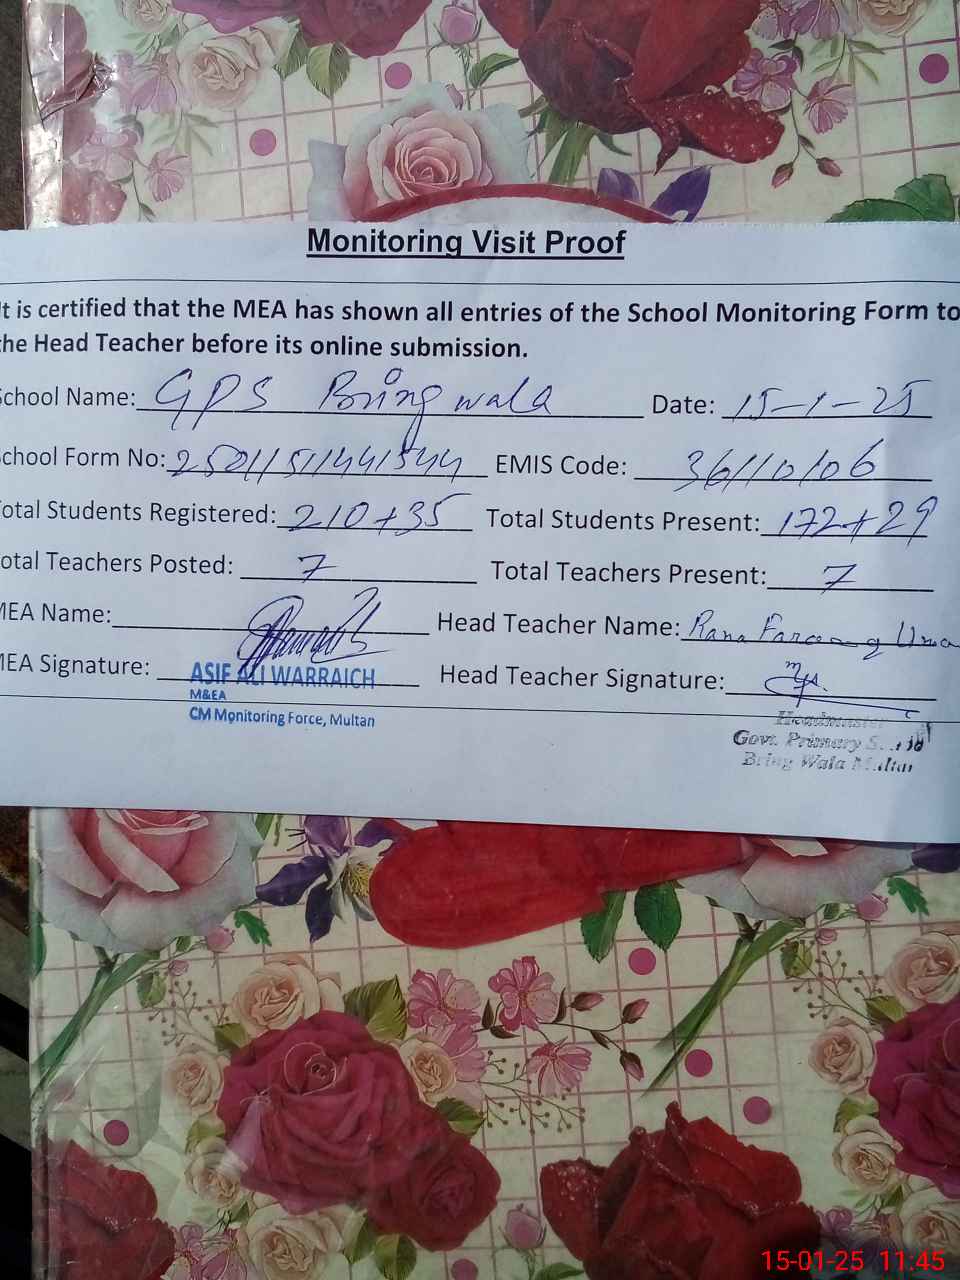 Monitoring Visit Proof
It is certified that the MEA has shown all entries of the School Monitoring Form to
the Head Teacher before its online submission.
School Name: GPS Bring wala Date: 15-1-25
School Form No: EMIS Code: 36110106
Total Students Registered: 210+35 Total Students Present: 172+29
Total Teachers Posted: 7 Total Teachers Present: 7
MEA Name: Head Teacher Name: Rana Farooq
MEA Signature: Head Teacher Signature:
ASIF ALI WARRAICH
M&EA
CM Monitoring Force, Multan
Headmaster
Govt. Primary
Bring Wala Multan
15-01-25 11:45